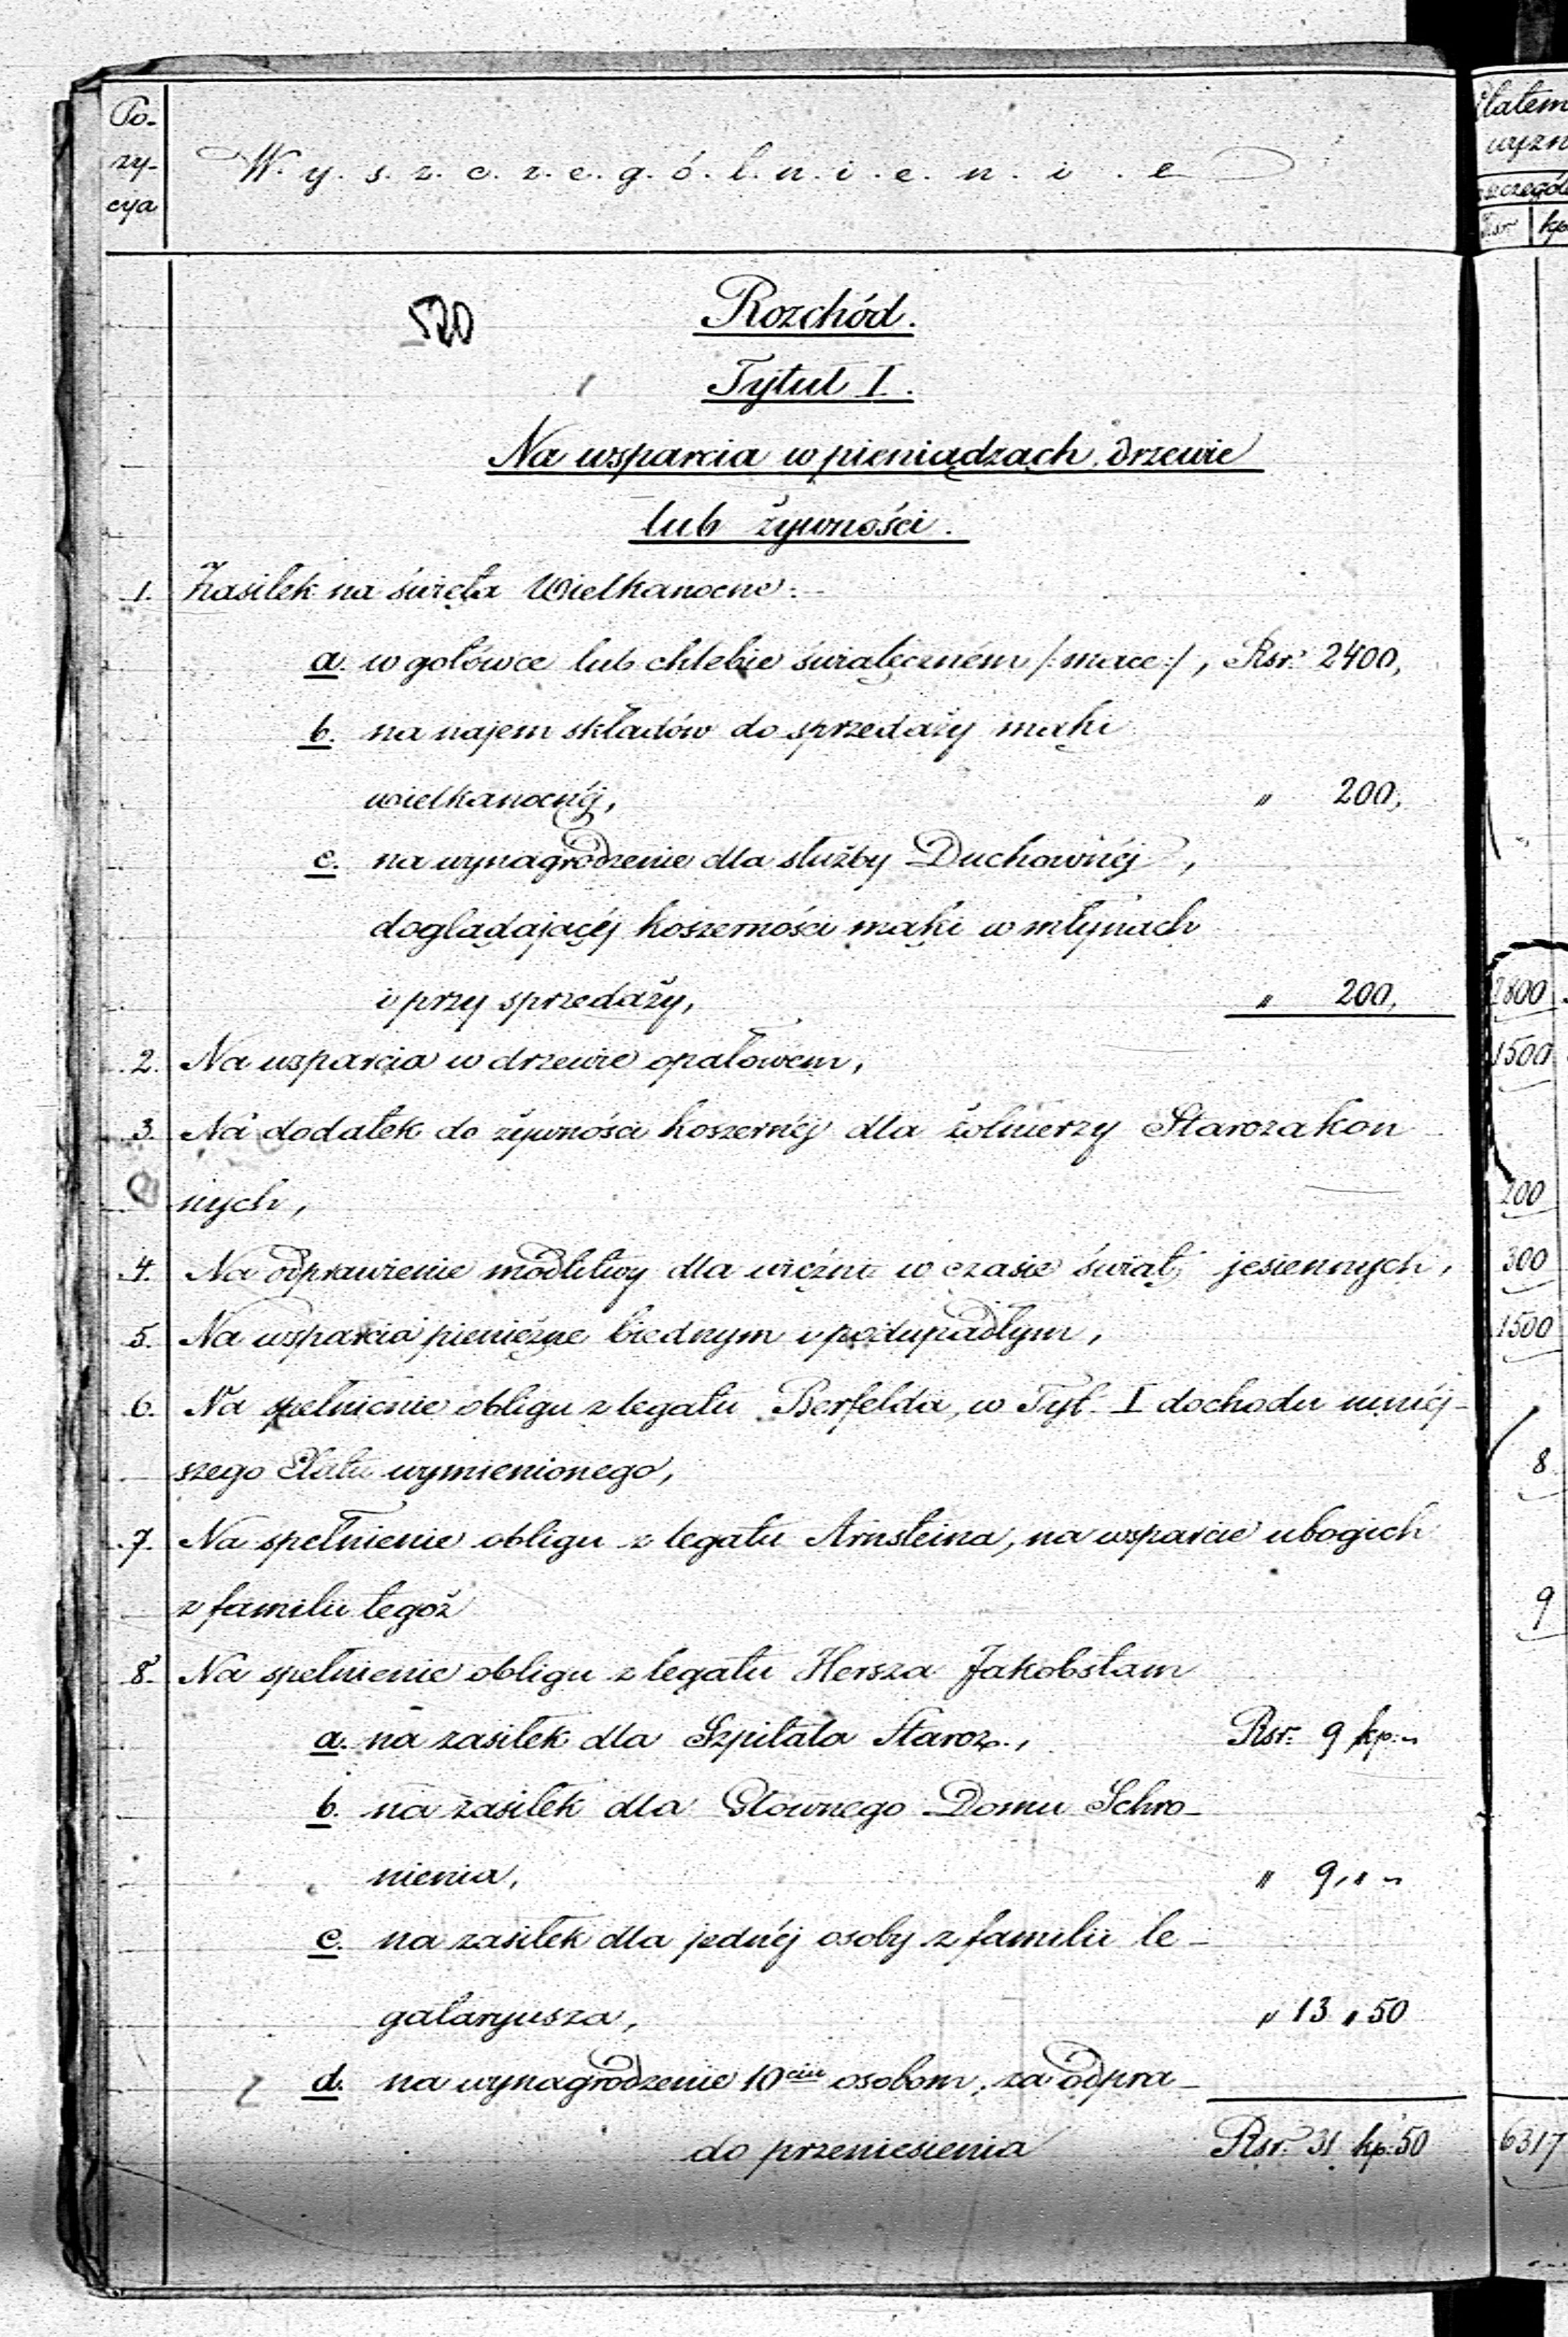 Po-
zy-
cya
W.y.s.z.c.z.e.g.ó.l.n.i.e.n.i.e
520
Rozchód.
Tytuł I.
Na wsparcia w pieniądzach, drzewie
lub żywności.
1. Zasiłek na święta Wielkanocne:
a. w gotówce lub chlebie świątecznem /:mace:/, Rsr. 2400,
b. na najem składów do sprzedaży mąki
wielkanocnéj, " 200,
c. na wynagrodzenie dla służby Duchownéj,
doglądającéj koszerności mąki w młynach
i przy sprzedaży, " 200,
2. Na wsparcia w drzewie opałowem,
3. Na dodatek do żywności koszernéj dla żołnierzy Starozakon
nych,
4. Na odprawienie modlitwy dla więźni w czasie świąt jesiennych,
5. Na wsparcia pieniężne biednym i podupadłym,
6. Na spełnienie obligu z legatu Berfelda, w Tyt. I dochodu niniéj-
szego Etatu wymienionego,
7. Na spełnienie obligu z legatu Arnsteina, na wsparcie ubogich
z familii tegoż
8. Na spełnienie obligu z legatu Hersza Jakobstam
a. na zasiłek dla Szpitala Staroz., Rsr. 9 kp. "
b. na zasiłek dla Głownego Domu Schro-
nienia, " 9 " "
c. na zasiłek dla jednéj osoby z familii le-
gataryusza, " 13 " 50
d. na wynagrodzenie 10ciu osobom, za odpra-
do przeniesienia Rsr. 31 kp. 50
Etatem
wyzn
szczegól
Rsr. kp
2800
1500
200
300
1500
8
9
6317